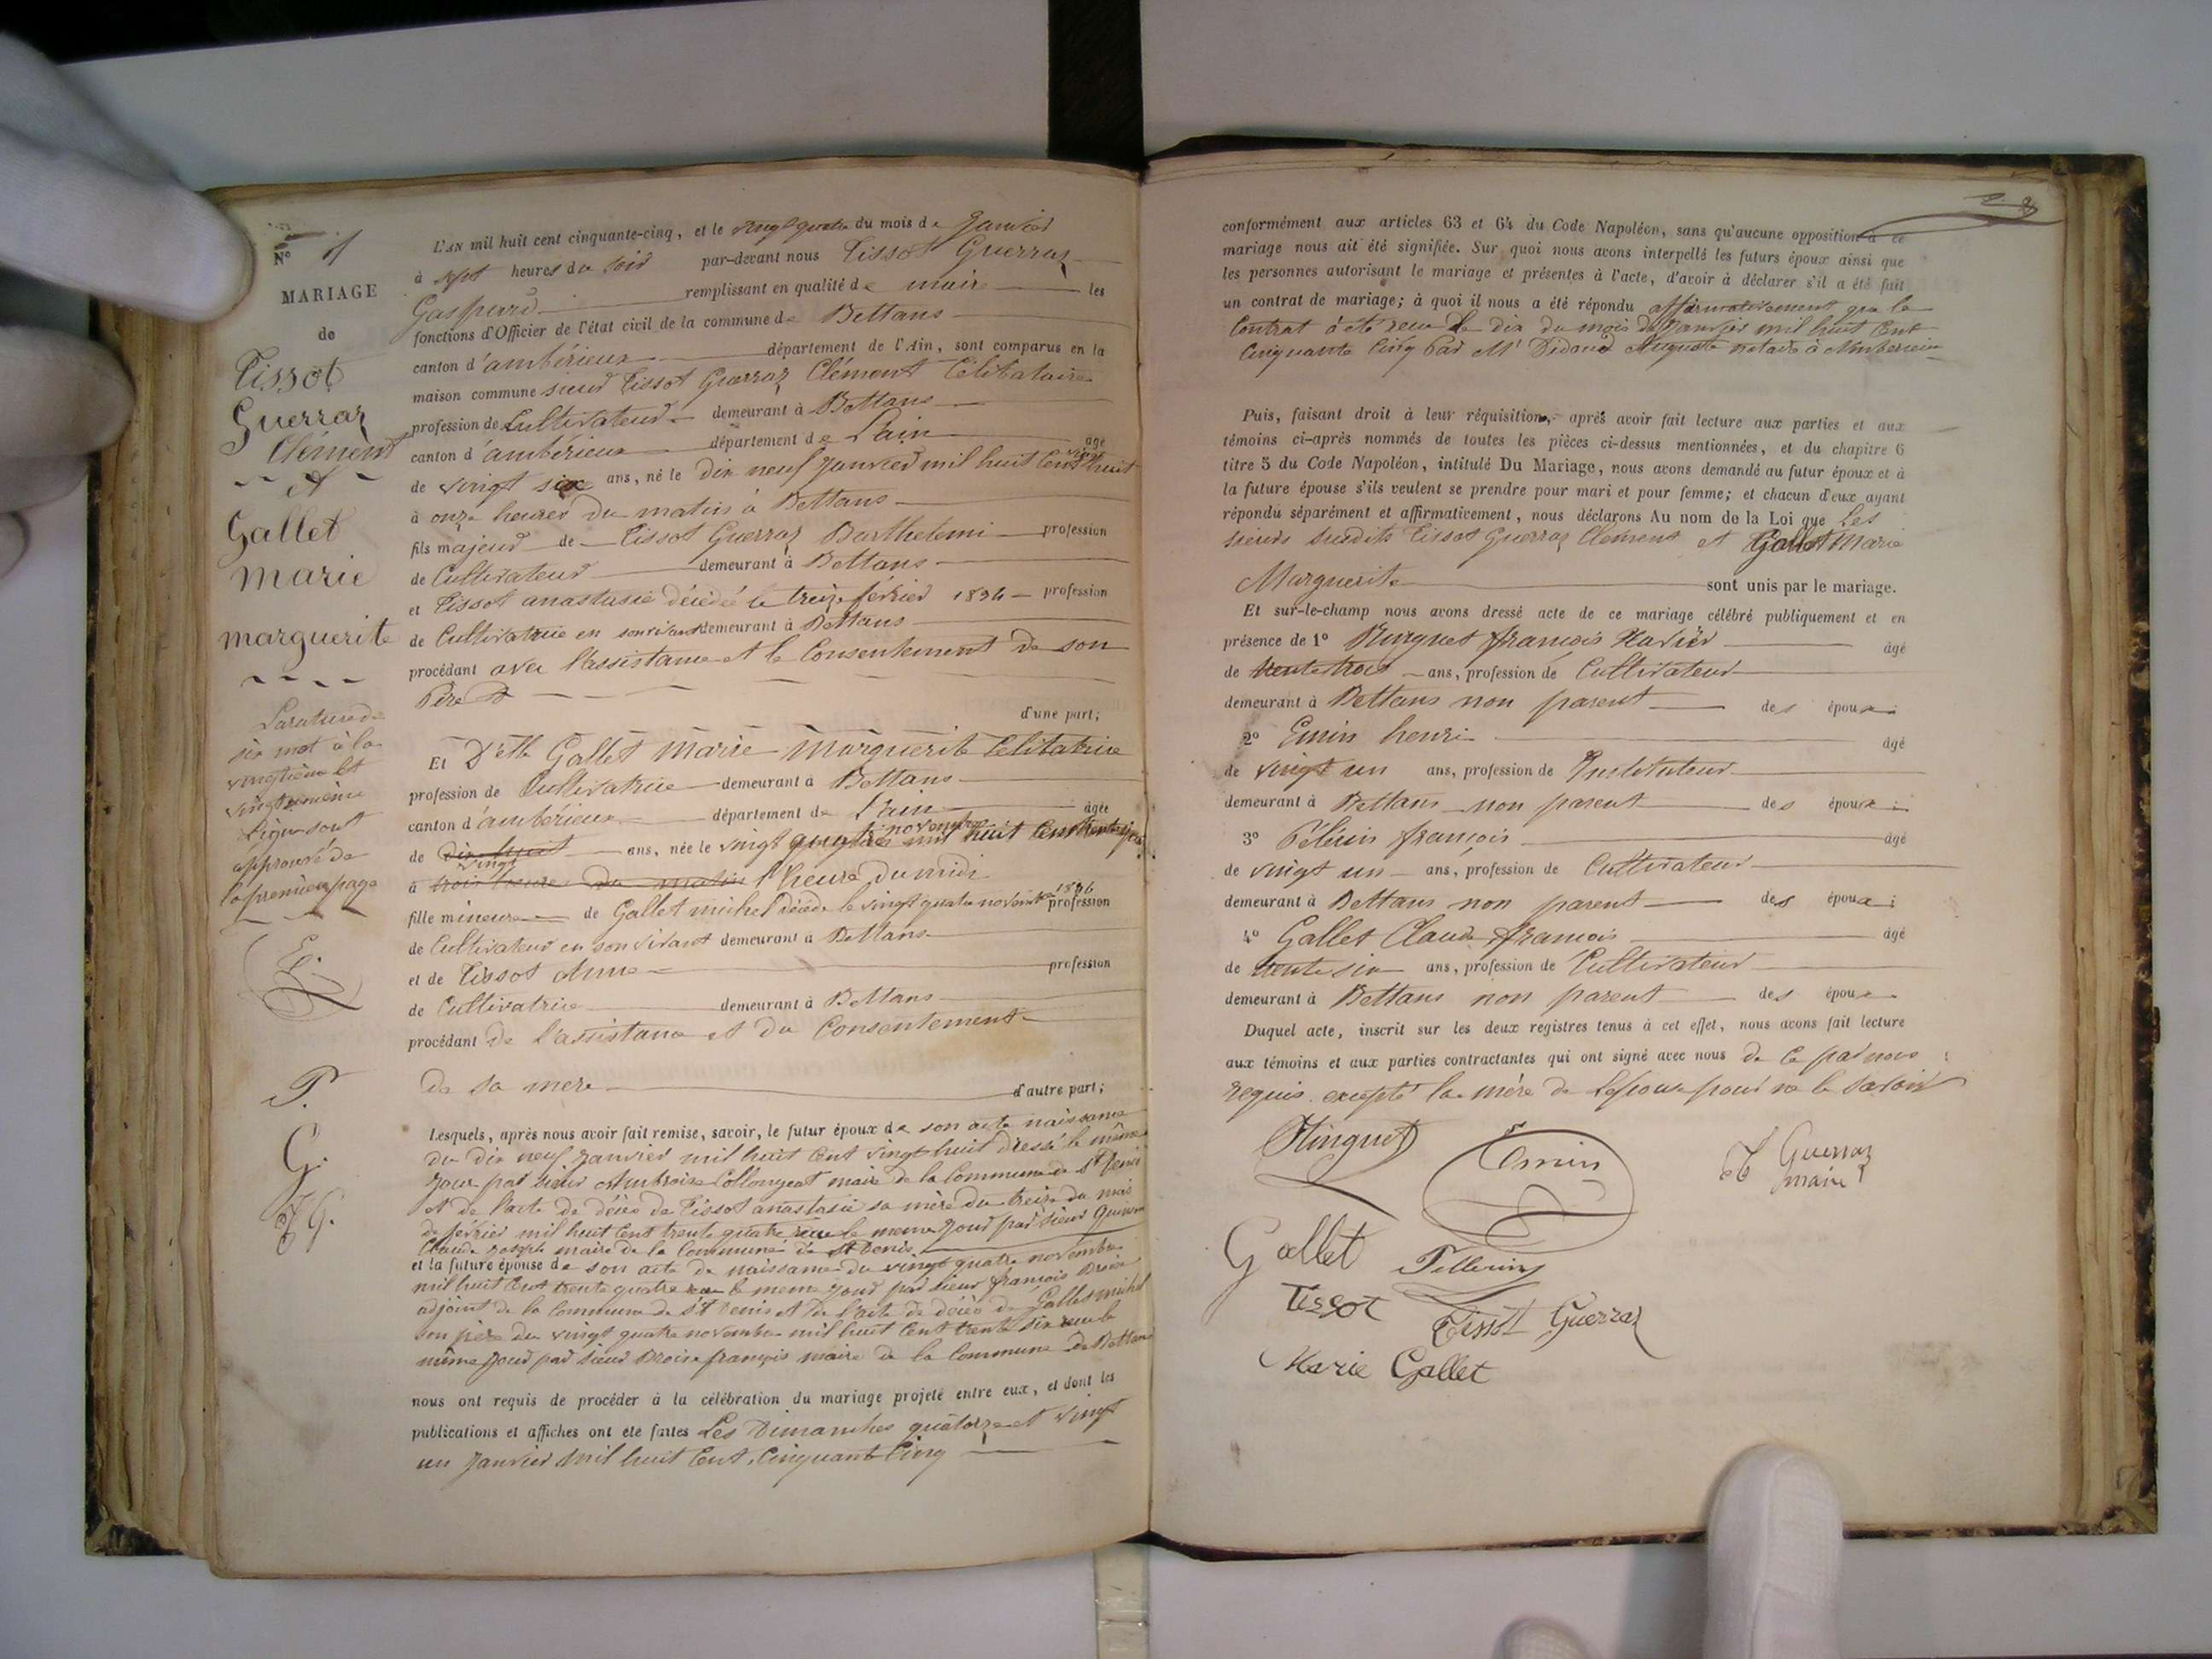 N° 1
MARIAGE
de
Tissot
Guerraz
Clément
et
Gallet
marie
marguerite
La rature de
six mot à la
vingtième et
vingt unième
ligne sont
approuvé de
la première page
E.
P.
G.
T G.
L'AN mil huit cent cinquante-cinq, et le vingt quatre du mois de Janvier
à sept heures du soir par-devant nous Tissot Guerraz
Gaspard remplissant en qualité de maire les
fonctions d'Officier de l'état civil de la commune de Bettans
canton d'ambérieux département de l'Ain, sont comparus en la
maison commune sieur Tissot Guerraz Clément Célibataire
profession de Cultivateur demeurant à Bettans
canton d'ambérieux département de l'ain âgé
de vingt six ans, né le dix neuf Janvier mil huit Cent vingt huit
à onze heures du matin à Bettans
fils majeur de Tissot Guerraz Barthelemi profession
de Cultivateur demeurant à Bettans
et Tissot anastasie décédée le treize février 1834 profession
de Cultivatrice en son vivant demeurant à Bettans
procédant avec l'assistance et le Consentement de son
Père
d'une part;
Et Delle Gallet Marie Marguerite Célibatrice
profession de Cultivatrice demeurant à Bettans
canton d'ambérieux département de l'ain âgée
de dix huit vingt ans, née le vingt quatre novembre mil huit Cent trente quatre
à trois heures du matin l'heure du midi
fille mineure de Gallet michel décédé le vingt quatre novembre 1836 profession
de Cultivateur en son vivant demeurant à Bettans
et de Tissot Anne profession
de Cultivatrice demeurant à Bettans
procédant de l'assistance et du Consentement
de sa mere d'autre part;
Lesquels, après nous avoir fait remise, savoir, le futur époux de son acte naissance
du dix neuf Janvier mil huit Cent vingt huit dressé le même
jour par sieur Ambroise Collongeat maire de la Commune de St Denis
et de l'acte de décès de Tissot anastasie sa mère du treize du mois
de février mil huit Cent trente quatre reçu le meme jour par sieur
Claude Joseph maire de la Commune de St Denis
et la future épouse de son acte de naissance du vingt quatre novembre
mil huit Cent trente quatre reçu le meme jour par sieur françois
adjoint de la Commune de St Denis et de l'acte de décès de Gallet michel
son père du vingt quatre novembre mil huit Cent trente six reçu le
même jour par sieur françois maire de la Commune de Bettans
nous ont requis de procéder à la célébration du mariage projeté entre eux, et dont les
publications et affiches ont été faites Les Dimanches quatorze et vingt
un Janvier mil huit Cent Cinquante Cinq
conformément aux articles 63 et 64 du Code Napoléon, sans qu'aucune opposition à ce
mariage nous ait été signifiée. Sur quoi nous avons interpellé les futurs époux ainsi que
les personnes autorisant le mariage et présentes à l'acte, d'avoir à déclarer s'il a été fait
un contrat de mariage; à quoi il nous a été répondu affirmativement que le
Contrat à été reçu le dix du mois de Janvier mil huit Cent
Cinquante Cinq Par Mr Auguste notaire à Ambérieux
Puis, faisant droit à leur réquisition, après avoir fait lecture aux parties et aux
témoins ci-après nommés de toutes les pièces ci-dessus mentionnées, et du chapitre 6
titre 5 du Code Napoléon, intitulé Du Mariage, nous avons demandé au futur époux et à
la future épouse s'ils veulent se prendre pour mari et pour femme; et chacun d'eux ayant
répondu séparément et affirmativement, nous déclarons Au nom de la Loi que Les
sieurs susdits Tissot Guerraz Clément et Gallet Marie
Marguerite sont unis par le mariage.
Et sur-le-champ nous avons dressé acte de ce mariage célébré publiquement et en
présence de 1° françois Xavier âgé
de trente trois ans, profession de Cultivateur
demeurant à Bettans non parent des époux
2° Emin henri âgé
de vingt un ans, profession de Instituteur
demeurant à Bettans non parent des époux
3° françois âgé
de vingt un ans, profession de Cultivateur
demeurant à Bettans non parent des époux;
4° Gallet Claude françois âgé
de trente six ans, profession de Cultivateur
demeurant à Bettans non parent des époux
Duquel acte, inscrit sur les deux registres tenus à cet effet, nous avons fait lecture
aux témoins et aux parties contractantes qui ont signé avec nous de ce par nous
requis excepté la mére de Lepouse pour ne le savoir
Emin
T Guerraz
maire
Gallet
Pellerin
Tissot
Tissot Guerraz
Marie Gallet